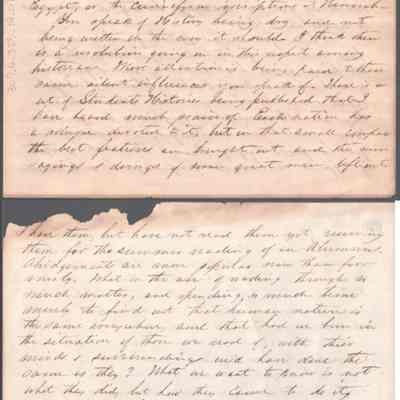 Egypt, or the Cuneiform inscriptions at
You speak of History being dry, and not
being written in the way it should. I think there
is a revolution going on in this respect among
historians. More attention is being paid to those
same silent influences you speak of. There is a
set of Students Histories being published that I
hear much praise of. Each nation has
a volume devoted to it, but in that small compass
the best features are brought out and the mere
sayings & doings of some great man left out
I have them, but have not read them yet
them for the summer reading of in
Abridgements are more popular now than for-
merly. What is the use of wading through so
much matter, and spending so much time
merely to find out that human nature is
the same everywhere, and that had we been in
the situation of those we read of, with their
minds & surroundings we'd have done the
same as they? What we want to know is not
what they did, but how they came to do it,